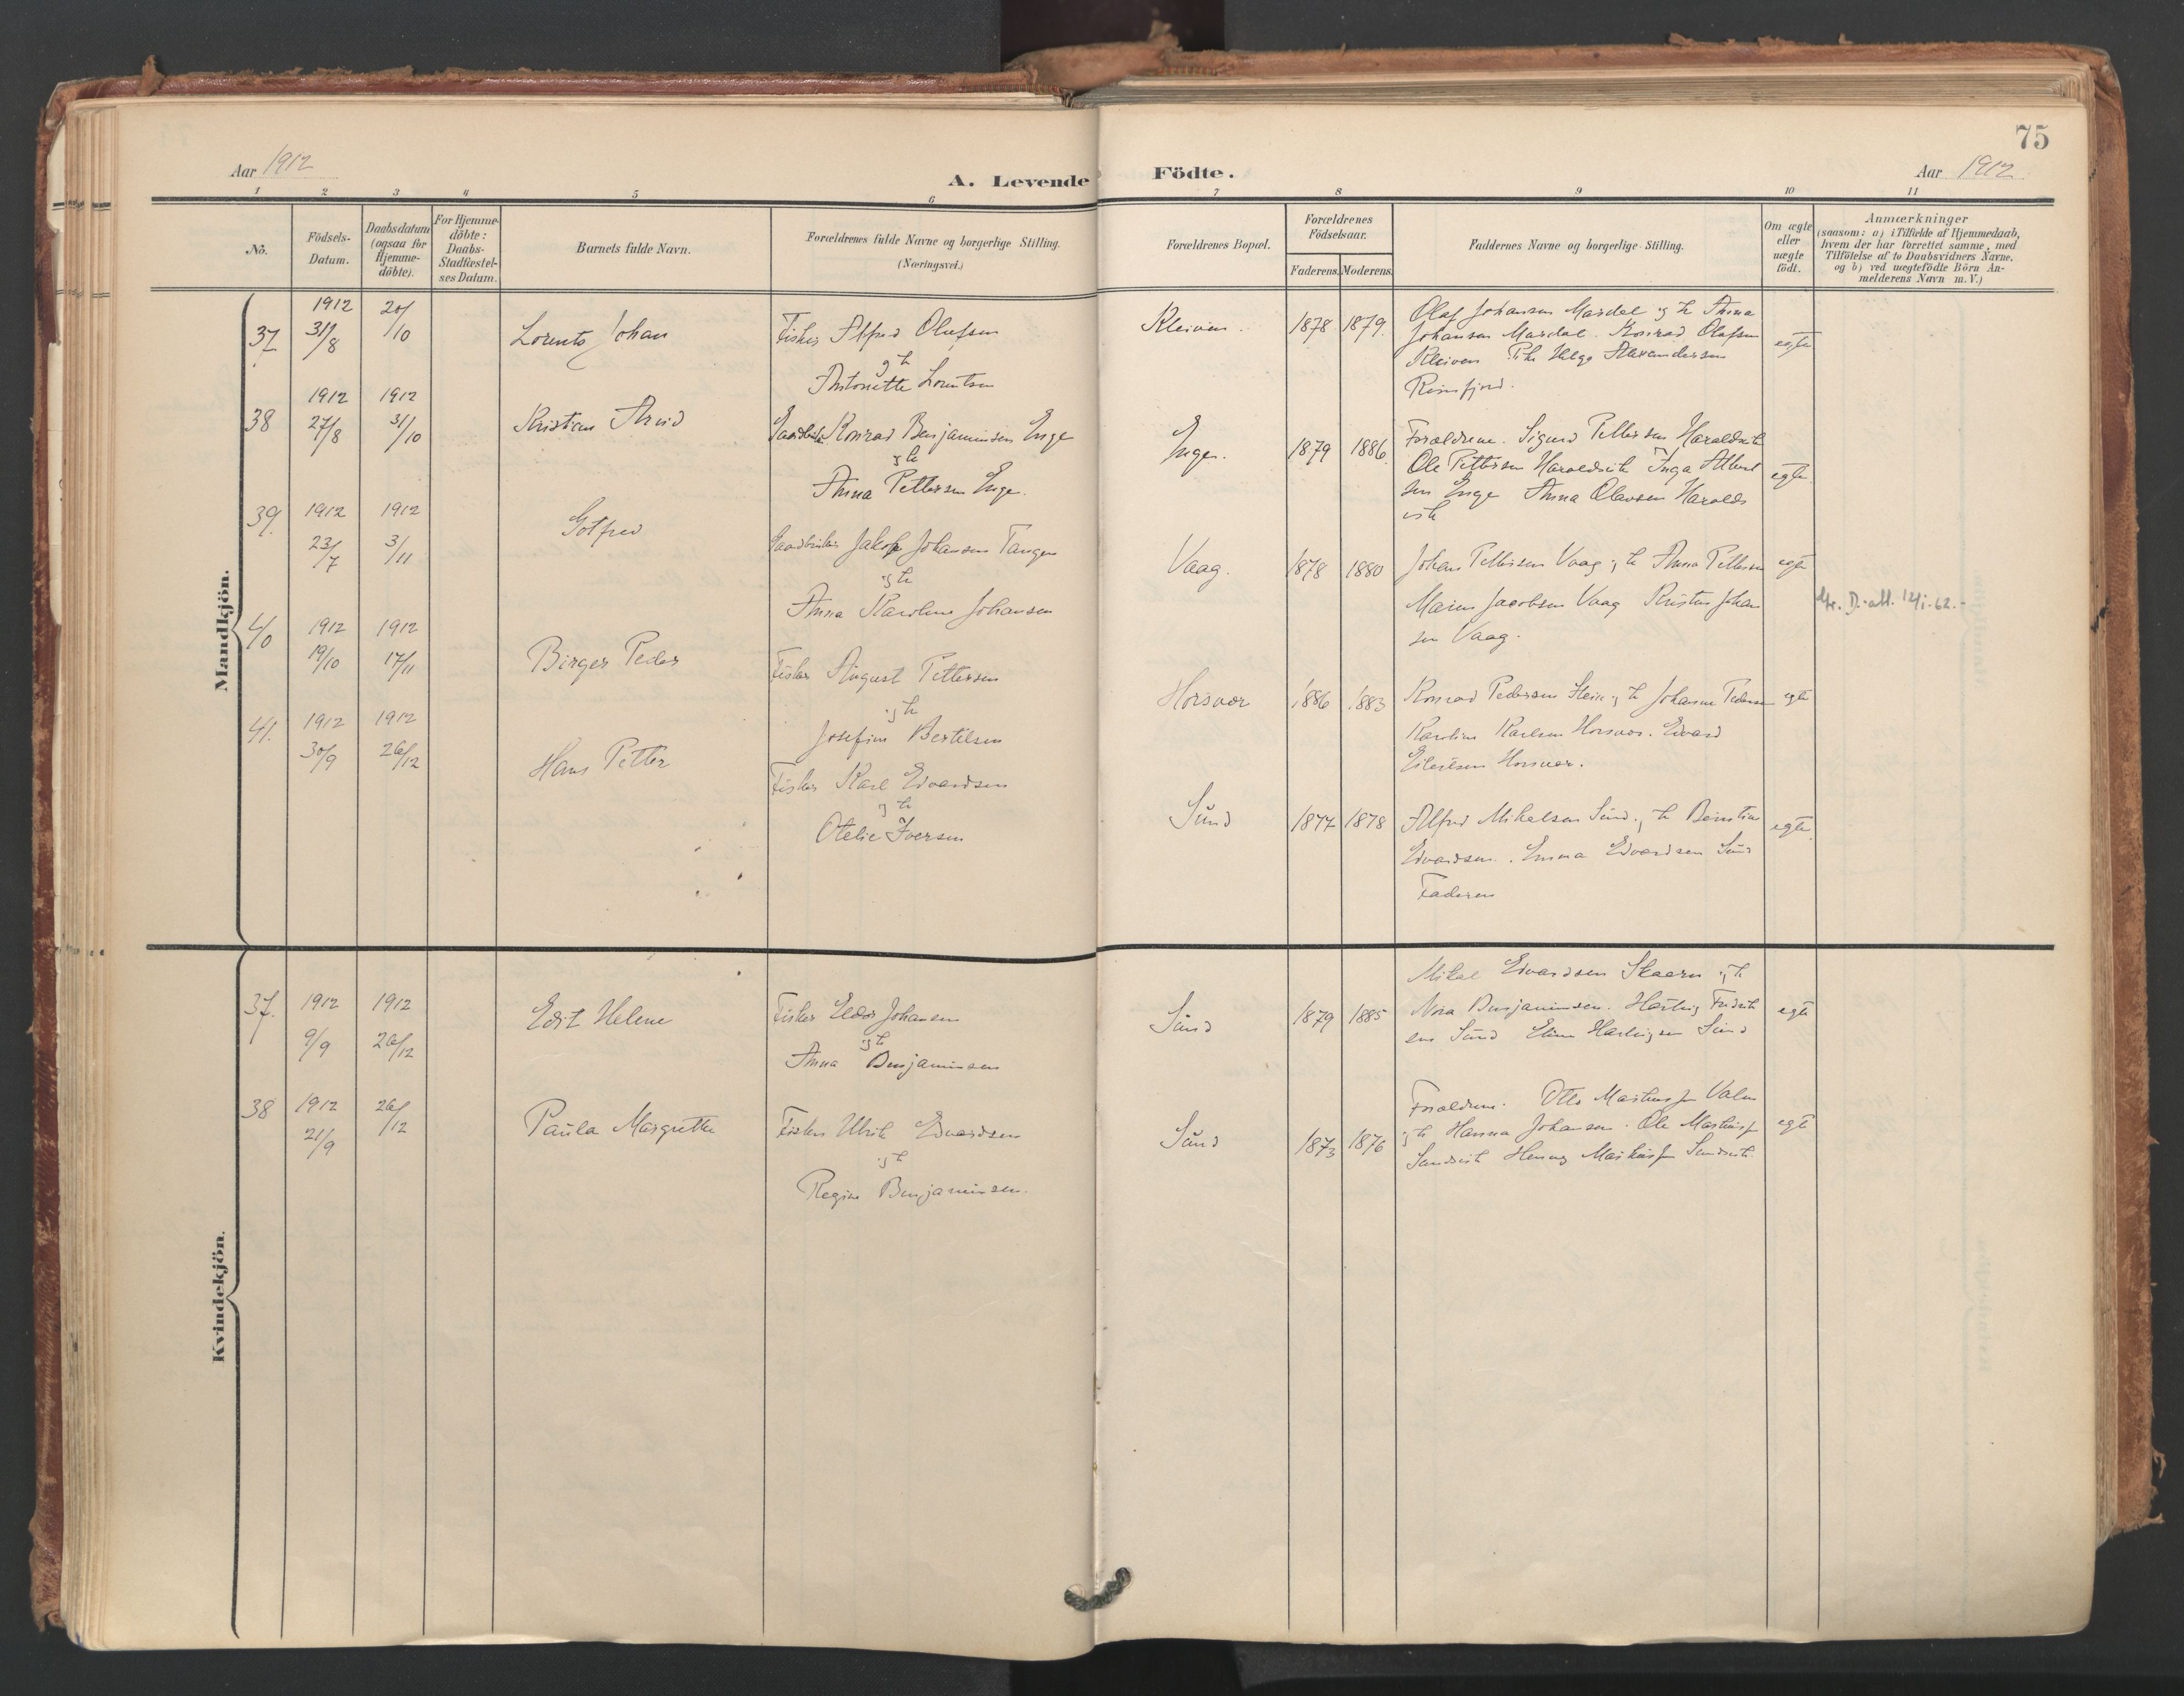 75
Aar 1912
A. Levende Födte.
Aar 1912
1 2 3 4 5 6 7 8 9 10 11
No.
Födsels-Datum.
Daabsdatum (ogsaa for Hjemme-döbte).
For Hjemme-döbte: Daabs-Stadfæstel-ses Datum.
Barnets fulde Navn.
Forældrenes fulde Navne og borgerlige Stilling.
(Næringsvei.)
Forældrenes Bopæl.
Forældrenes Födselsaar.
Faderens. Moderens.
Faddernes Navne og borgerlige Stilling.
Om ægte eller uægte födt.
Anmærkninger
(saasom: a) i Tilfælde af Hjemmedaab,
hvem der har forrettet samme, med
Tilföielse af to Daabsvidners Navne,
og b) ved uægtefödte Börn An-
melderens Navn m. V.)
Mandkjön.
37 1912 31/8 20/10
Lorents Johan
Fisker Alfred Olufsen
g h
Antonette Lorntsen
Kleiven. 1878 1879.
Olaf Johansen Mardal g h Anna
Johansen Mardal. Konrad Olafsen
Kleiven Pike Helga Alexandersen
egte
38 1912 27/8 1912 31/10
Kristian Arvid
Konrad Benjaminsen Enge
g h
Anna Pettersen Enge.
Enge. 1879 1886.
Forældrene. Sigurd Pettersen Haraldsvik
Ole Pettersen Haroldsvik Inga Albert
sen Enge Anna Olavsen Harolds
vik
egte
39. 1912 23/7 1912 3/11
Gotfred
Gaardbruker Jakob Johansen Tangen
g h
Anna Karoline Johansen
Vaag. 1878 1880
Johan Pettersen Vaag g h Anna Pettersen
Marius Jacobsen Vaag Kristen Johan
sen Vaag.
egte
D.-att. 12/1-62.-
40 1912 19/10 1912 17/11
Birger Peder
Fisker August Pettersen
g h
Josefine Bertilsen
Horsvær 1886 1883
Konrad Pedersen g h Johanne Pedersen
Karoline Karlsen Horsvær. Edvard
Eilertsen Horsvær.
egte
41. 1912 30/9 1912 26/12
Hans Petter
Fisker Karl Edvardsen
g h
Otelie Iversen
Sund 1877 1878
Alfred Mikelsen Sund. g h
Edvardsen. Emma Edvardsen Sund
Faderen
egte
Kvindekjön.
37. 1912 9/9 1912 26/12
Edit Helene
Fisker Johansen
g h
Anna Benjaminsen
Sund 1879 1885
Mikal Edvardsen g h
Nora Benjaminsen. Hartvig Fredrik
sen Sund Hartvigsen Sund
egte
38 1912 21/9 26/12
Paula Margrethe
Fisker Ulrik Edvardsen
g h
Regine Benjaminsen.
Sund 1873 1876
Forældrene. Otto
g h Hanna Johansen. Ole
Sandvik Sandvik.
egte